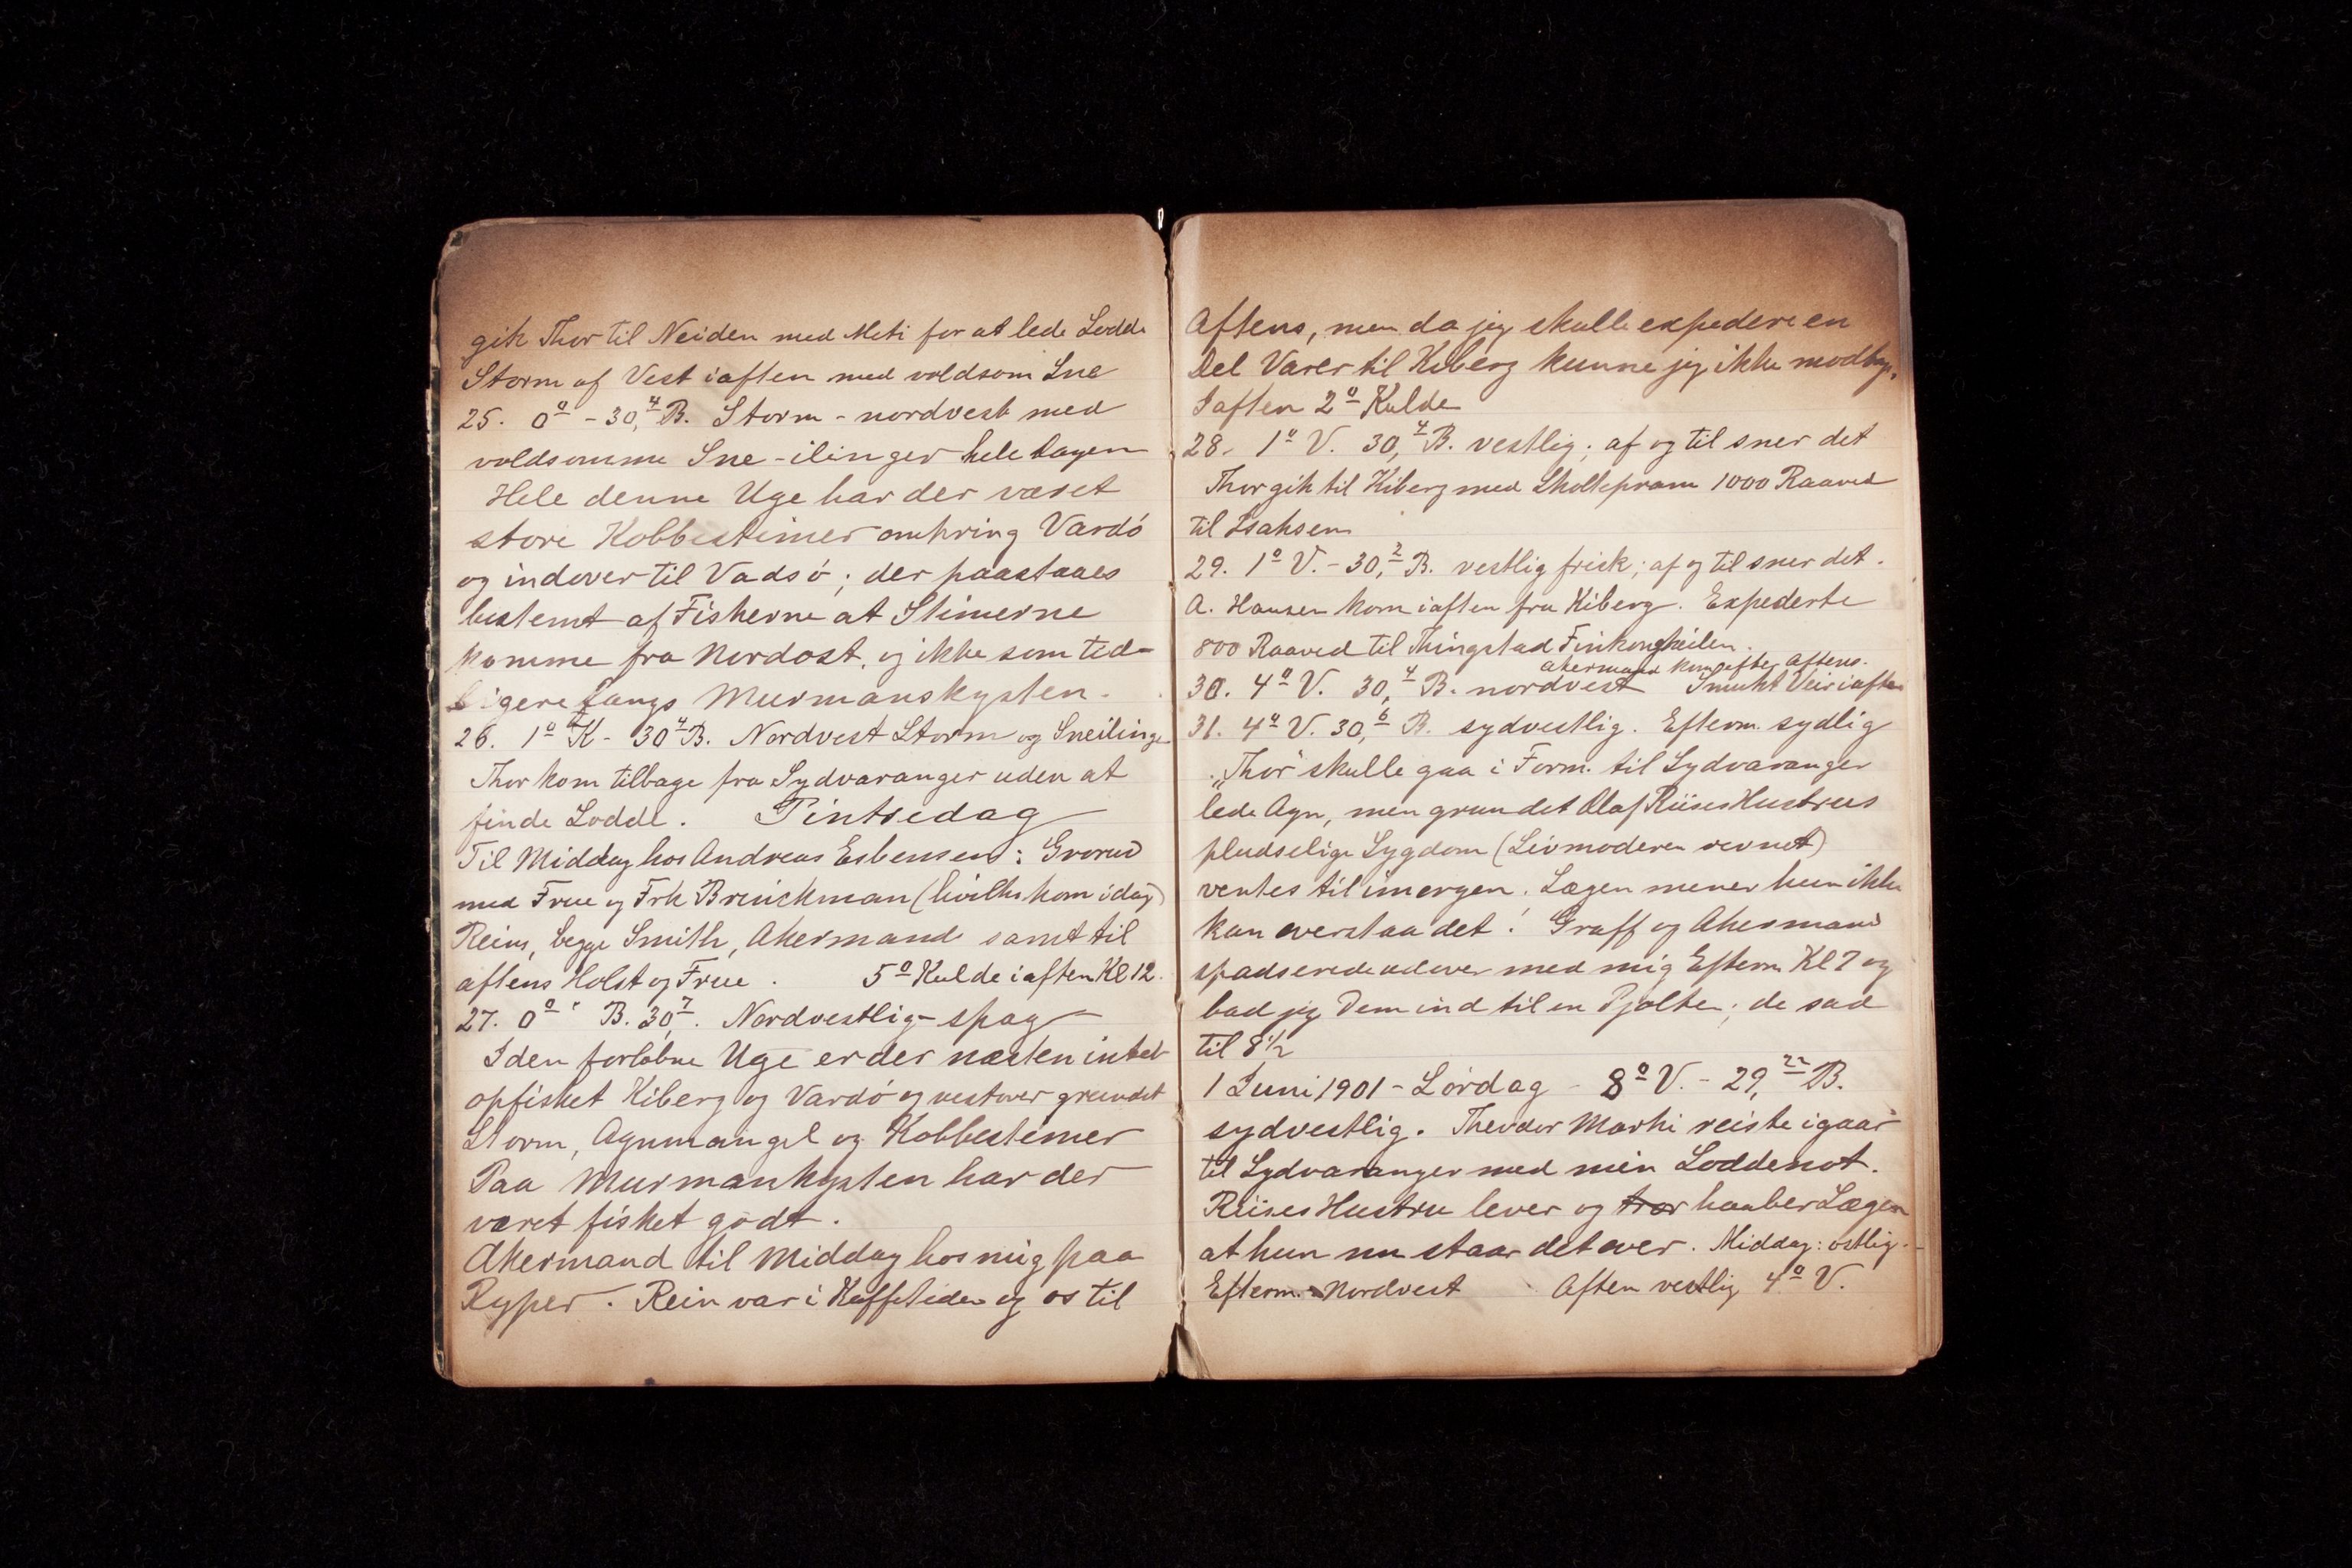 gik Thor til Neiden med Meti for at lede Lodde
Storm af Vest iaften med voldsom Sne
25. 0° - 30,4 B. Storm - nordvest med
voldsomme Sne-ilinger hele dagen
Hele denne Uge har der været
store Kobbestimer omkring Vardö
og indover til Vadsö; der paastaaes
bestemt af Fiskerne at Stimerne
komme fra Nordost, og ikke som tid-
ligere langs Murmanskysten.
26. 1° K - 30 4 B. Nordvest Storm og Sneilinge
Thor kom tilbage fra Sydvaranger uden at
finde Lodde. Pintsedag
Til Middag hos Andreas Esbensen: Gvorud
med Frue og Frk Brinckman (hvilke kom idag)
Rein, begge Smith, Akermand samt til
aftens Holst og Frue. 5° Kulde iaften Kl 12.
27. 0° B. 30,7. Nordvestlig - spag
I den forlöbne Uge er der næsten intet
opfisket Kiberg og Vardö og vestover grundet
Storm, Agnmangel og Kobbestimer
Paa Murmankysten har der
været fisket godt.
Akermand til Middag hos mig paa
Ryper. Rein var i Kaffetiden og os til
Aftens, men da jeg skulle expedere en
Del Varer til Kiberg kunne jeg ikke modtage.
Iaften 2° Kulde
28. 1° V. 30,4 B. vestlig; af og til sner det
Thor gik til Kiberg med Skoltepram 1000 Raaved
til Isaksen
29. 1° V. - 30,2 B. vestlig frisk; af og til sner det.
A. Hansen kom iaften fra Kiberg. Expederte
800 Raaved til Thingstad Finkongkeilen.
Akermand kom efter Aftens.
30. 4° V. 30,4 B. nordvest Smukt Veir iaften
31. 4° V. 30,6 B. sydvestlig. Efterm. sydlig
"Thor" skulle gaa i Form. til Sydvaranger
lede Agn, men grundet Olaf Riises Hustrus
pludselige Sygdom (Livmoderen revnet)
ventes til imorgen. Lægen mener hun ikke
kan overstaa det! Graff og Akermand
spadserede udover med mig Efterm Kl 7 og
bad jeg Dem ind til en Pjolter; de sad
til 8 1/2
1 Juni 1901 - Lördag - 8° V. - 29,22 B.
sydvestlig. Theodor Marki reiste igaar
til Sydvaranger med min Loddenot.
Riises Hustru lever og tror haaber Lægen
at hun nu staar det over. Middag: östlig.
Efterm. Nordvest Aften vestlig 4° V.